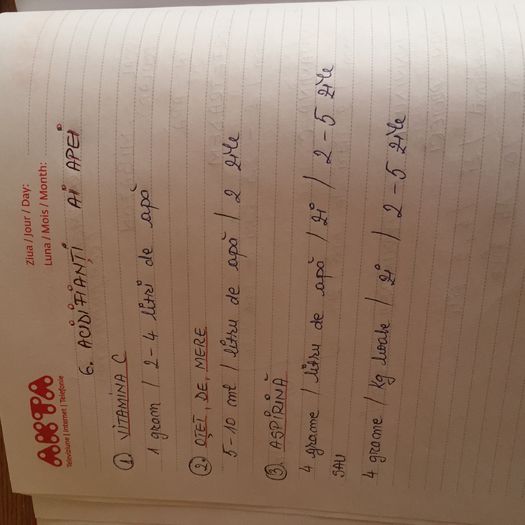 AKTA
Televiziune | Internet | Telefonie
Ziua / Jour / Day:
Luna / Mois / Month:
6. ACIDIFIANȚI AI APEI
① VITAMINA C
1 gram / 2-4 litri de apă
② OȚET DE MERE
5-10 ml / litru de apă / 2 zile
③ ASPIRINĂ
4 grame / litru de apă / zi / 2-5 zile
SAU
4 grame / kg hoabe / zi / 2-5 zile